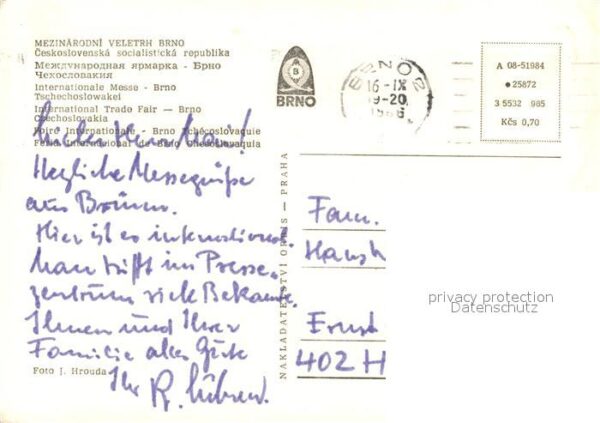 MEZINÁRODNÍ VELETRH BRNO
Československá socialistická republika
Международная ярмарка - Брно
Чехословакия
Internationale Messe - Brno
Tschechoslowakei
International Trade Fair — Brno
Czechoslovakia
Foire Internationale - Brno Tchécoslovaquie
Feria Internacional de Brno Checoslovaquia
Herzliche Messegrüße
aus Brünn.
Hier ist es international.
Man trifft im Presse-
zentrum viele Bekannte.
Ihnen und Ihrer
Familie alles Gute
Ihr
Foto J. Hrouda
BRNO
BRNO 2
16-IX
19-20
1986
A 08-51984
● 25872
3 5532 985
Kčs 0,70
NAKLADATELSTVÍ ORBIS — PRAHA
Fam.
Ernst
402 H
privacy protection
Datenschutz